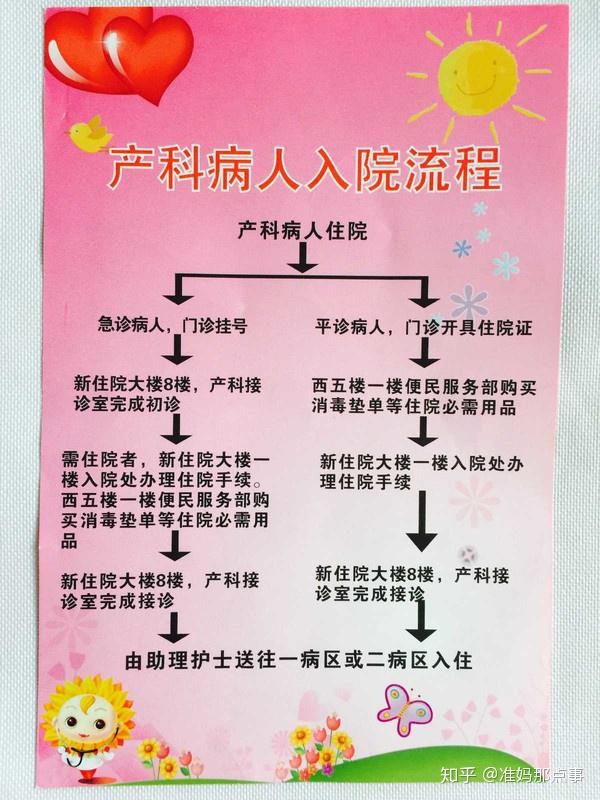 产科病人入院流程
产科病人住院
急诊病人，门诊挂号
新住院大楼8楼，产科接
诊室完成初诊
需住院者，新住院大楼一
楼入院处办理住院手续。
西五楼一楼便民服务部购
买消毒垫单等住院必需用
品
新住院大楼8楼，产科接
诊室完成接诊
平诊病人，门诊开具住院证
西五楼一楼便民服务部购买
消毒垫单等住院必需用品
新住院大楼一楼入院处办
理住院手续
新住院大楼8楼，产科接
诊室完成接诊
由助理护士送往一病区或二病区入住
知乎 @准妈那点事